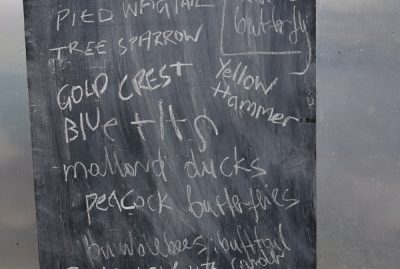 PIED WAGTAIL
butterfly
TREE SPARROW
GOLD CREST
Yellow
Hammer
BLUe tits
mallard ducks
peacock butterflies
bumblebees: bufftail